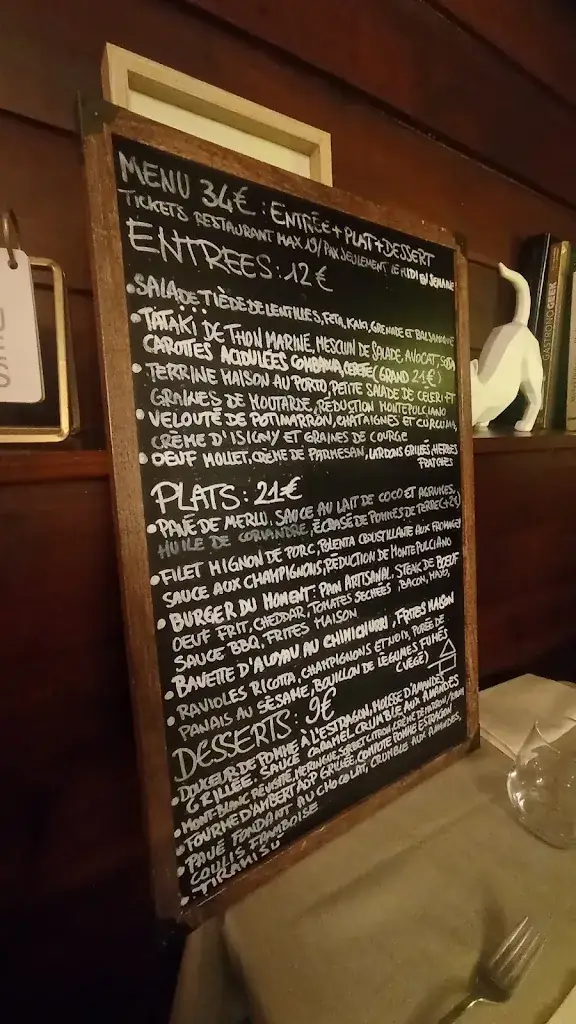 MENU 34€ : ENTRÉE + PLAT + DESSERT
TICKETS RESTAURANT MAX 19/PAX SEULEMENT LE MIDI EN SEMAINE
ENTREES : 12€
• SALADE TIÈDE DE LENTILLES, FETA, KAKI, GRENADE ET BALSAMIQUE
• TATAKI DE THON MARINÉ, MESCLUN DE SALADE, AVOCAT, SOJA
CAROTTES ACIDULÉES COMBAVA, CEBETTE (GRAND 21€)
• TERRINE MAISON AU PORTO, PETITE SALADE DE CELERI ET
GRAINES DE MOUTARDE, RÉDUCTION MONTEPULCIANO
• VELOUTÉ DE POTIMARRON, CHATAIGNES ET CURCUMA,
CRÈME D'ISIGNY ET GRAINES DE COURGE
• OEUF MOLLET, CRÈME DE PARMESAN, LARDONS GRILLÉS, HERBES
FRAICHES
PLATS : 21€
• PAVÉ DE MERLU, SAUCE AU LAIT DE COCO ET AGRUMES,
HUILE DE CORIANDRE, ÉCRASÉ DE POMMES DE TERRE (+2€)
• FILET MIGNON DE PORC, POLENTA CROUSTILLANTE AUX FROMAGES
SAUCE AUX CHAMPIGNONS, RÉDUCTION DE MONTEPULCIANO
• BURGER DU MOMENT : PAIN ARTISANAL, STEAK DE BOEUF
OEUF FRIT, CHEDDAR, TOMATES SECHÉES, BACON, MAYO,
SAUCE BBQ, FRITES MAISON
• BAVETTE D'ALOYAU AU CHIMICHURRI, FRITES MAISON
• RAVIOLES RICOTTA, CHAMPIGNONS ET NOIX, PURÉE DE
PANAIS AU SÉSAME, BOUILLON DE LÉGUMES FUMÉS
(VEGE)
DESSERTS : 9€
• DOUCEUR DE POMME À L'ESTRAGON, MOUSSE D'AMANDES
GRILLÉE, SAUCE CARAMEL, CRUMBLE AUX AMANDES
• MONT-BLANC REVISITÉ, MERINGUE, SORBET CITRON, CRÈME DE MARRON
• FOURME D'AMBERT AOP GRILLÉE, COMPOTE POMME ESTRAGON
• PAVÉ FONDANT AU CHOCOLAT, CRUMBLE AUX AMANDES,
COULIS FRAMBOISE
• TIRAMISU
GASTRONOGEEK